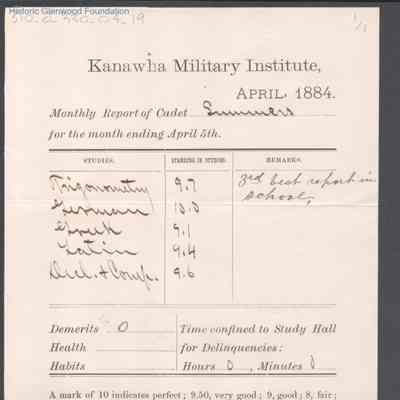 Historic Glenwood Foundation
1/1
Kanawha Military Institute,
APRIL, 1884.
Monthly Report of Cadet Summers
for the month ending April 5th.
STUDIES. STANDING IN STUDIES. REMARKS.
Trigonometry 9.7 3rd best report in
German 10.0 school,
Greek 9.1
Latin 9.4
Decl. & Comp. 9.6
Demerits 0 Time confined to Study Hall
Health for Delinquencies:
Habits Hours 0, Minutes 0
A mark of 10 indicates perfect; 9.50, very good; 9, good; 8, fair;